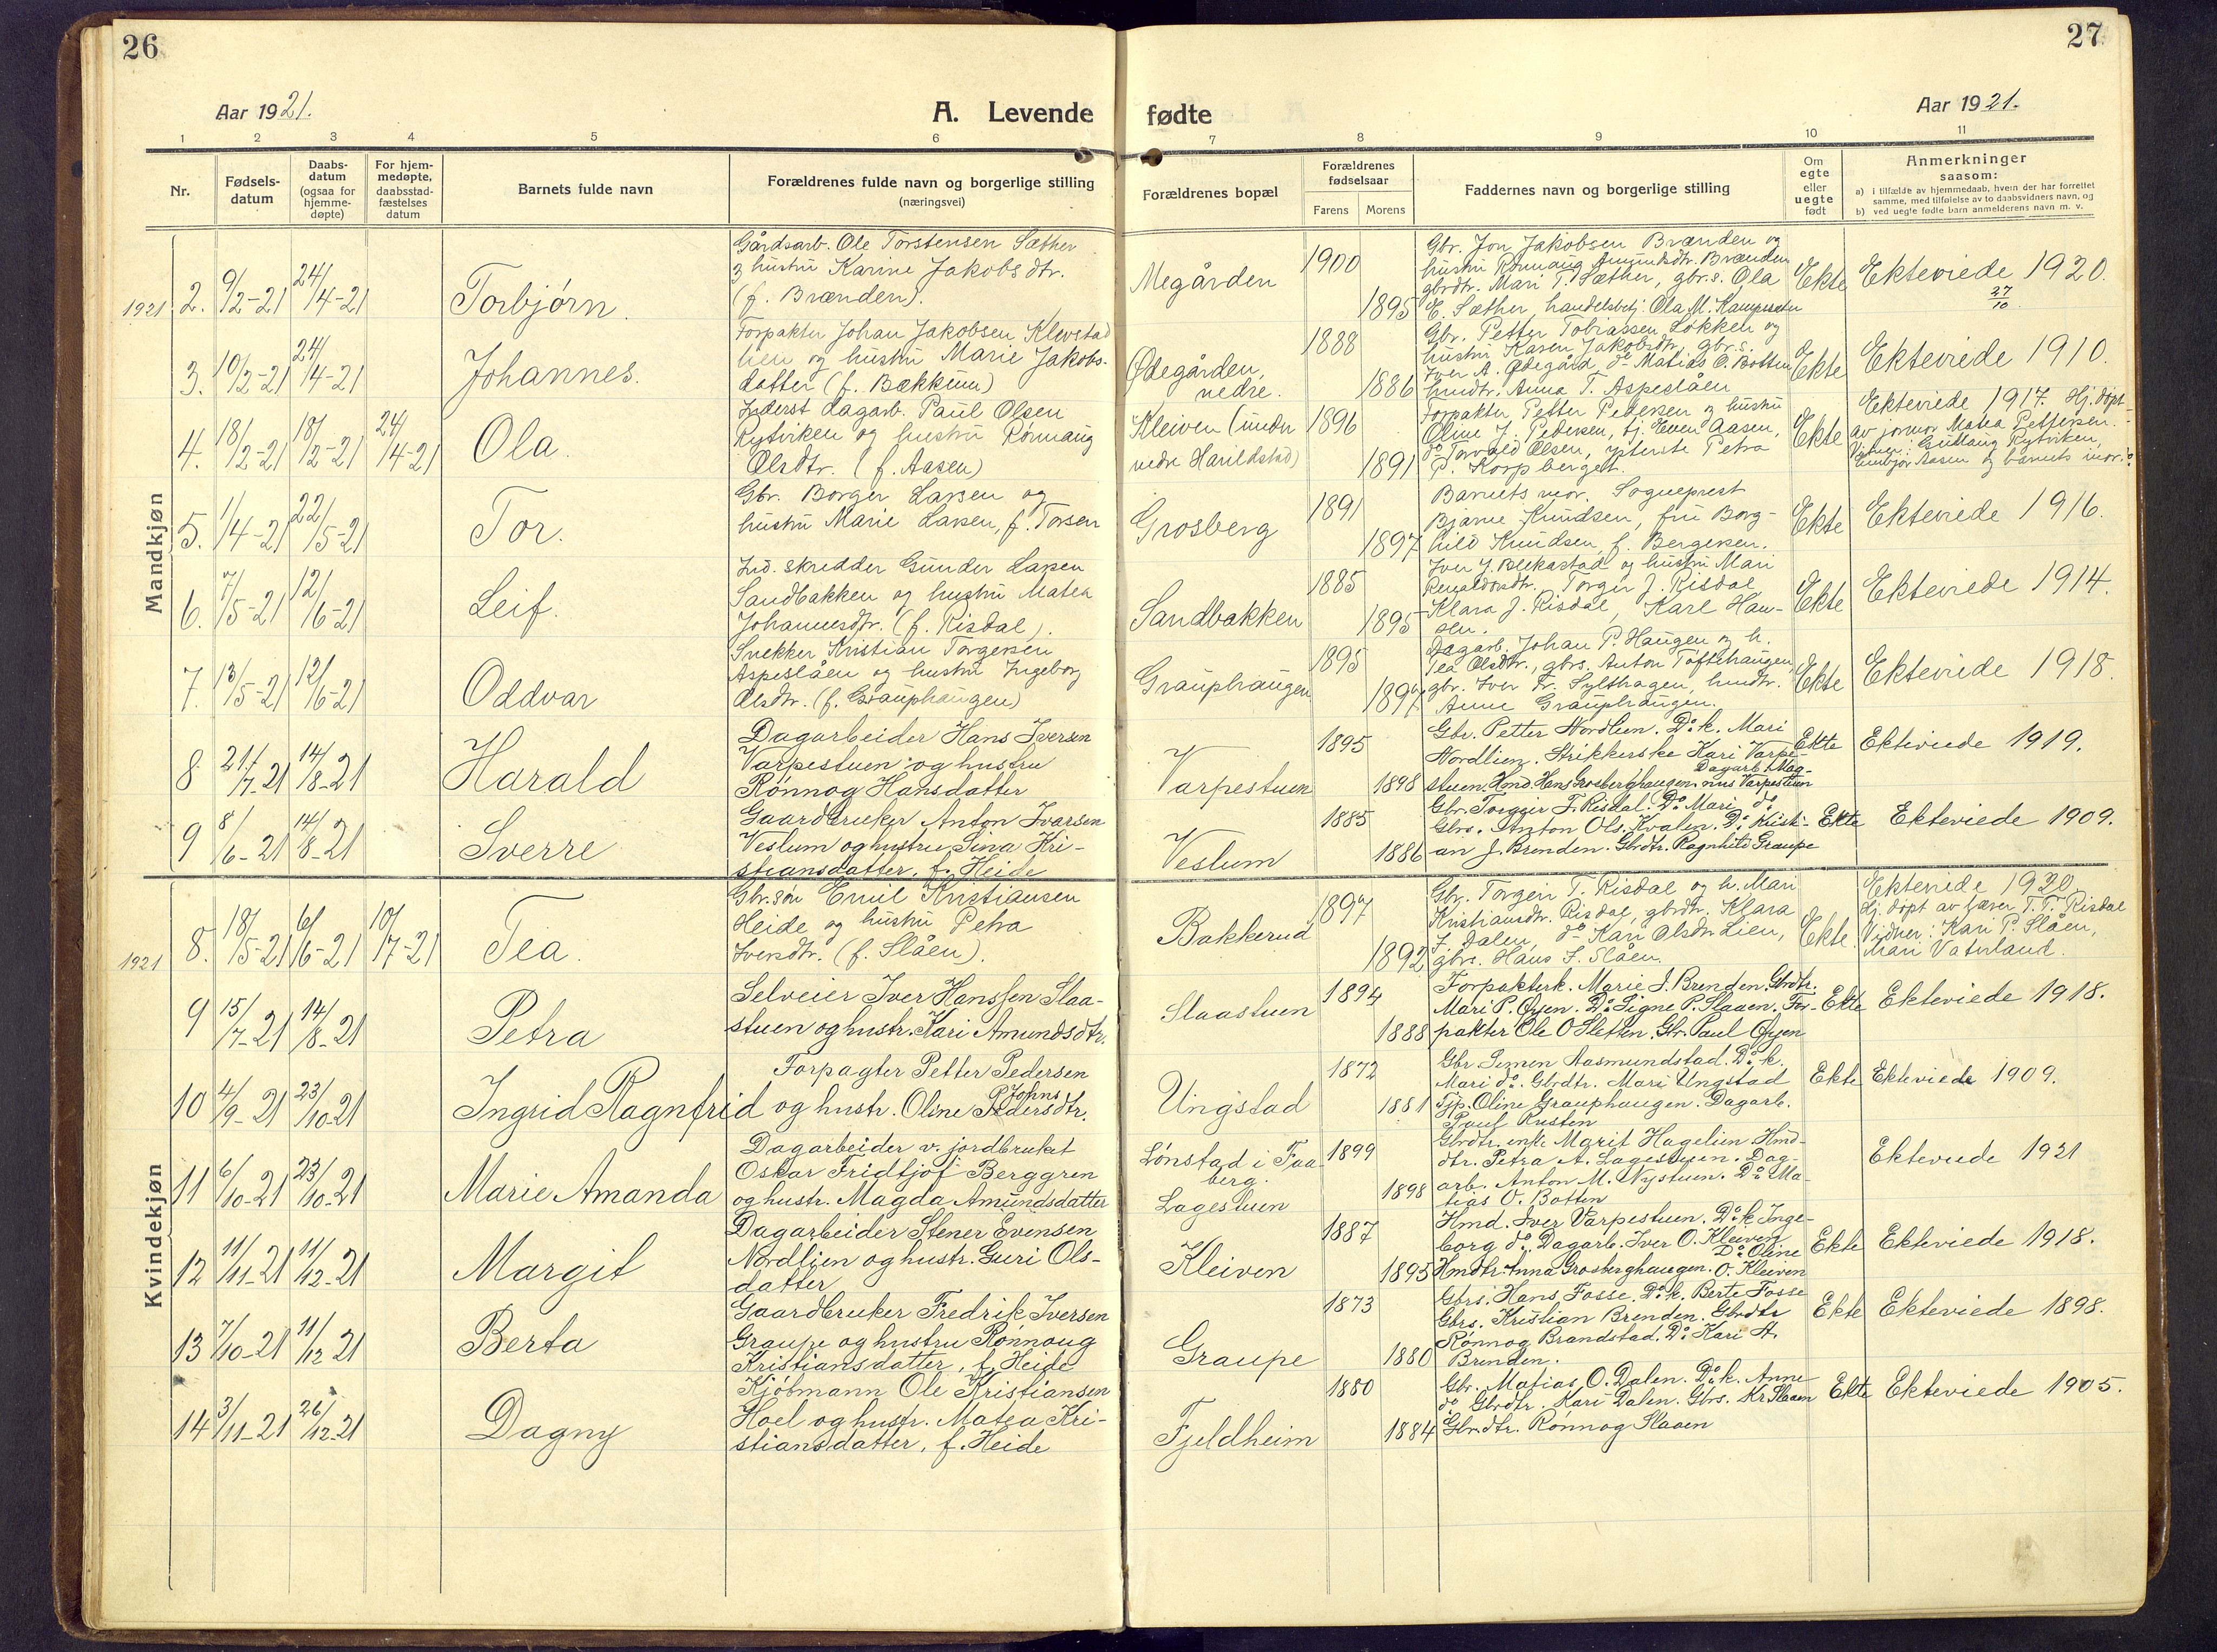 26
Aar 1921.
A. Levende
1 2 3 4 5 6
Nr.
Fødsels-
datum
Daabs-
datum
(ogsaa for
hjemme-
døpte)
For hjem-
medøpte,
daabsstad-
fæstelses
datum
Barnets fulde navn
Forældrenes fulde navn og borgerlige stilling
(næringsvei)
Mandkjøn
1921 2. 9/2-21 24/4-21 Torbjørn.
Gårdsarb. Ole Torstensen Sæther
og hustru Karine Jakobsdtr.
(f. Brænden).
3. 10/2-21 24/4-21 Johannes.
Forpakter Johan Jakobsen Klevstad
lien og hustru Marie Jakobs-
datter (f. Bækkum)
4. 18/2-21 18/2-21 24/4-21 Ola.
Inderst dagarb. Paul Olsen
Rytviken og hustru Rønnaug
Olsdtr. (f. Aasen)
5. 1/4-21 22/5-21 Tor.
Gbr. Borger Larsen og
hustru Marie Larsen, f. Torsen
6. 7/5-21 12/6-21 Leif.
Ind. skredder Gunder Larsen
Sandbakken og hustru Matea
Johannesdtr. (f. Risdal).
7. 13/5-21 12/6-21 Oddvar
Snekker Kristian Torgersen
Aspeslåen og hustru Ingeborg
Olsdtr. (f. Grauphaugen)
8. 21/7-21 14/8-21 Harald
Dagarbeider Hans Iversen
Varpestuen og hustru
Rønnog Hansdatter
9 8/6-21 14/8-21 Sverre
Gaardbruker Anton Ivarsen
Veslum og hustru Sina Kri-
stiansdatter, f. Heide
Kvindekjøn
1921 8. 18/5-21 6/6-21 10/7-21 Tea.
Gbr.søn Emil Kristiansen
Heide og hustru Petra
Iversdtr. (f. Slåen).
9 15/7-21 14/8-21 Petra
Selveier Iver Hanssen Slaa-
stuen og hustr. Kari Amundsdtr.
10 4/9-21 23/10-21 Ingrid Ragnfrid
Forpagter Petter Pedersen
og hustr. Oline Johns
Pedersdtr.
11 6/10-21 23/10-21 Marie Amanda
Dagarbeider v. jordbruket
Oskar Fridtjof Berggren
og hustr. Magda Amundsdatter
12 11/11-21 11/12-21 Margit
Dagarbeider Stener Evensen
Nordlien og hustr. Guri Ols-
datter
13 7/10-21 11/12 21 Berta
Gaardbruker Fredrik Iversen
Graupe og hustru Rønnoug
Kristiansdatter, f. Heide
14 3/11-21 26/12-21 Dagny
Kjøbmann Ole Kristiansen
Hoel og hustr. Matea Kri-
stiansdatter, f. Heide
27
fødte
Aar 1921.
7 8 9 10 11
Forældrenes bopæl
Forældrenes
fødselsaar
Farens Morens
Faddernes navn og borgerlige stilling
Om
egte
eller
uegte
født
Anmerkninger
saasom:
a) i tilfælde av hjemmedaab, hvem der har forrettet
samme, med tilføielse av to daabsvidners navn, og
b) ved uegte fødte barn anmelderens navn m. v.
Megården 1900 1895
Gbr. Jon Jakobsen Brænden og
hustru Rønnaug Amundsdtr. Brænden
gbrdtr. Mari T. Sæther, gbr.s. Ola
E. Sæther, handelsbetj. Ola M. Kampeseter
Ekte Ekteviede 1920.
27/10
Ødegården,
nedre. 1888 1886
Gbr. Petter Tobiassen Løkken og
hustru Karen Jakobsdtr, gbr.s.
Iver A. Ødegård, do Matias O. Botten
hmdtr. Anna T. Aspeslåen
Ekte Ektevirede 1910.
Kleiven (under
nedre Harildstad) 1896 1891
Forpakter Petter Pedersen og hustru
Oline J. Pedersen, tj. Even Aasen,
do Torvald Olsen, ysterske Petra
P. Korpberget.
Ekte Ektevirede 1917. Hj. døpt
av jormor Matea Pettersen.
Vidner: Gullaug Rytviken,
Embjør Aasen og barnets mor.
Grosberg 1891 1897
Barnets mor. Sogneprest
Bjarne Knudsen, fru Borg-
hild Knudsen, f. Bergersen.
Ekte Ektevirede 1916.
Sandbakken 1885 1895
Iver J. Blekastad og hustru Mari
Torger J. Risdal
Klara J. Risdal, Karl Han-
sen.
Ekte Ektevirede 1914.
Grauphaugen 1895 1897
Dagarb. Johan P. Haugen og h.
Tea Olsdtr., gbrs. Anton Toftehaugen,
gbr. Iver Fr. Sylthagen, hmdtr.
Anne Grauphaugen.
Ekte Ektevirede 1918.
Varpestuen 1895 1898
Gbr. Petter Nordlien. Do k. Mari
Nordlien. Strikkerske Kari Varpe-
stuen. Hmd. Hans Grosberghaugen. Dagarb. Mag-
nus Varpestuen
Ekte Ekteviede 1919.
Veslum 1885 1886
Gbr. Torgeir T. Risdal. Do Mari do
Gbrs. Anton Ols. Kvalen. Do Kristi-
an J. Brenden. Gbrdtr. Ragnhild Graupe
Ekte Ekteviede 1909.
Bakkerud 1897 1892
Gbr. Torgeir T. Risdal og h. Mari
Kristiansdtr. Risdal, gbrdtr. Klara
J. Dalen, do Kari Olsdtr. Lien,
gbrs. Hans S. Slåen.
Ekte. Ektevirede 1920
Hj. døpt av lærer T. T. Risdal
Vidner: Kari P. Slåen,
Mari Vaterland.
Slaastuen 1894 1888
Forpakterk. Marie J. Brenden. Gbrdtr.
Mari P. Øyen. Do Signe P. Slaaen. For-
pakter Ole O Sletten. Gbr. Paul Øyen
Ekte Ekteviede 1918.
Ungstad 1872 1881
Gbr Semen Aasmundstad. Do k.
Mari do. Gbrdtr. Mari Ungstad
Tjp. Oline Grauphaugen. Dagarb.
Paul Rusten
Ekte Ekteviede 1909.
Lønstad i Faa-
berg.
Lagestuen 1899 1898
Gbrdtr. enke Marit Hagelien Hmd-
dtr. Petra A. Lagestuen. Dag-
arb. Anton M. Nystuen. Do Ma-
tias O. Botten
Ekteviede 1921
Kleiven 1887 1895
Hmd. Iver Varpestuen. Do k Inge-
borg do. Dagarb. Iver O. Kleiven
Hmdtr. Anna Grosberghaugen. Do Oline
O. Kleiven
Ekte Ekteviede 1918.
Graupe 1873 1880
Gbrs. Hans Fosse. Do k. Berte Fosse
Gbrs. Kristian Brenden. Gbrdtr
Rønnog Brandstad. Do Kari A.
Brenden.
Ekte Ekteviede 1898.
Fjeldheim 1880 1884
Gbr. Matias O. Dalen. Do k. Anne
do Gbrdtr. Kari Dalen. Gbrs. Kr Slaaen
Gbrdtr. Rønnog Slaaen
Ekte Ekteviede 1905.